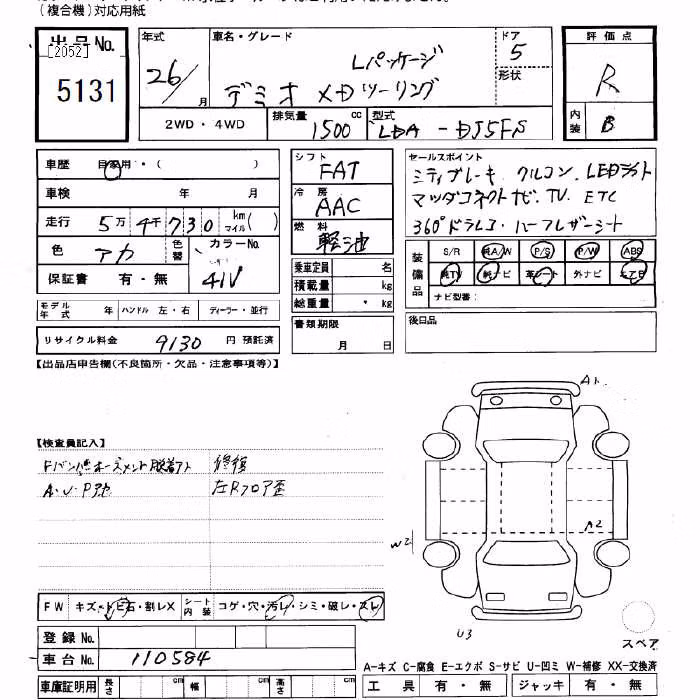 (複合機)対応用紙
出品No.
[2052]
5131
年式 26/ 月
車名・グレード Lパッケージ
デミオ XDツーリング
ドア 5
形状
2WD・4WD
排気量 1500 cc
型式 LDA-DJ5FS
評価点 R
内装 B
車歴 自家用・( )
車検 年 月
走行 5万4千730 km マイル( )
色 アカ 色替 カラーNo. 41V
保証書 有・無
モデル年式 年 ハンドル 左・右 ディーラー・並行
リサイクル料金 9130 円 預託済
シフト FAT
冷房 AAC
燃料 軽油
乗車定員 名
積載量 kg
総重量 kg
書類期限
月 日
セールスポイント
シティブレーキ. クルコン. LEDライト
マツダコネクトナビ. TV. ETC
360°ドラレコ・ハーフレザーシート
装備品
S/R 純A/W P/S P/W ABS
純TV 純ナビ 革シート 外ナビ エアB
ナビ型番:
後日品
【出品店申告欄(不良箇所・欠品・注意事項等)】
【検査員記入】
修復
A・U・P
左Rフロア歪
A1
A2
W2
U3
スペア
FW キズ・トビ石・割レX シート内装 コゲ・穴・汚レ・シミ・破レ・スレ
登録No.
車台No. 110584
車庫証明用 長さ cm 幅 cm 高さ cm
A-キズ C-腐食 E-エクボ S-サビ U-凹ミ W-補修 XX-交換済
工具 有・無 ジャッキ 有・無